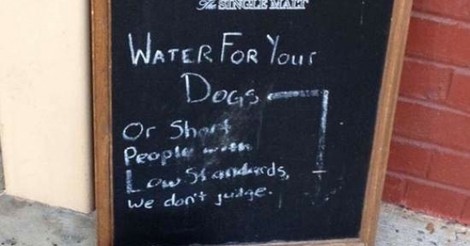 The SINGLE MALT
WATER FOR YOUR
DOGS
Or Short
People with
Low Standards,
we don't judge.